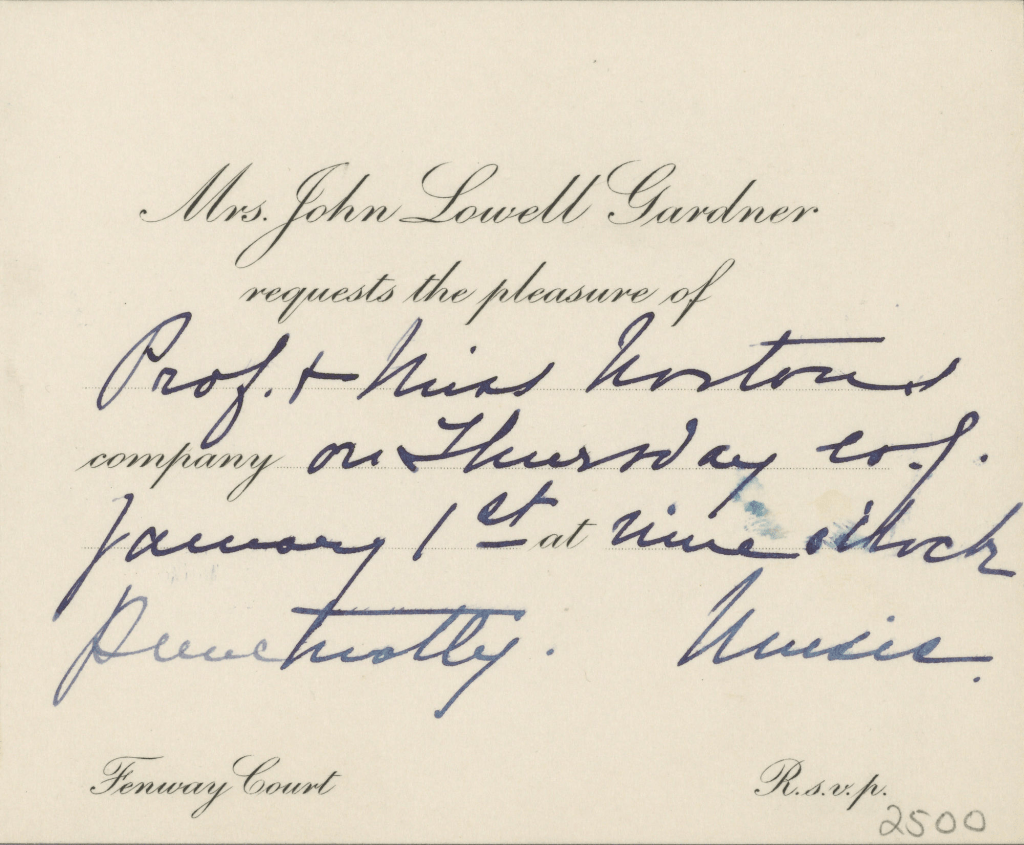 Mrs. John Lowell Gardner
requests the pleasure of
Prof. + Miss Norton's
company on Thursday ev'g.
January 1st at nine o'clock
punctually. Music.
Fenway Court R.s.v.p.
2500